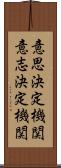 意思決定機関
意志決定機関